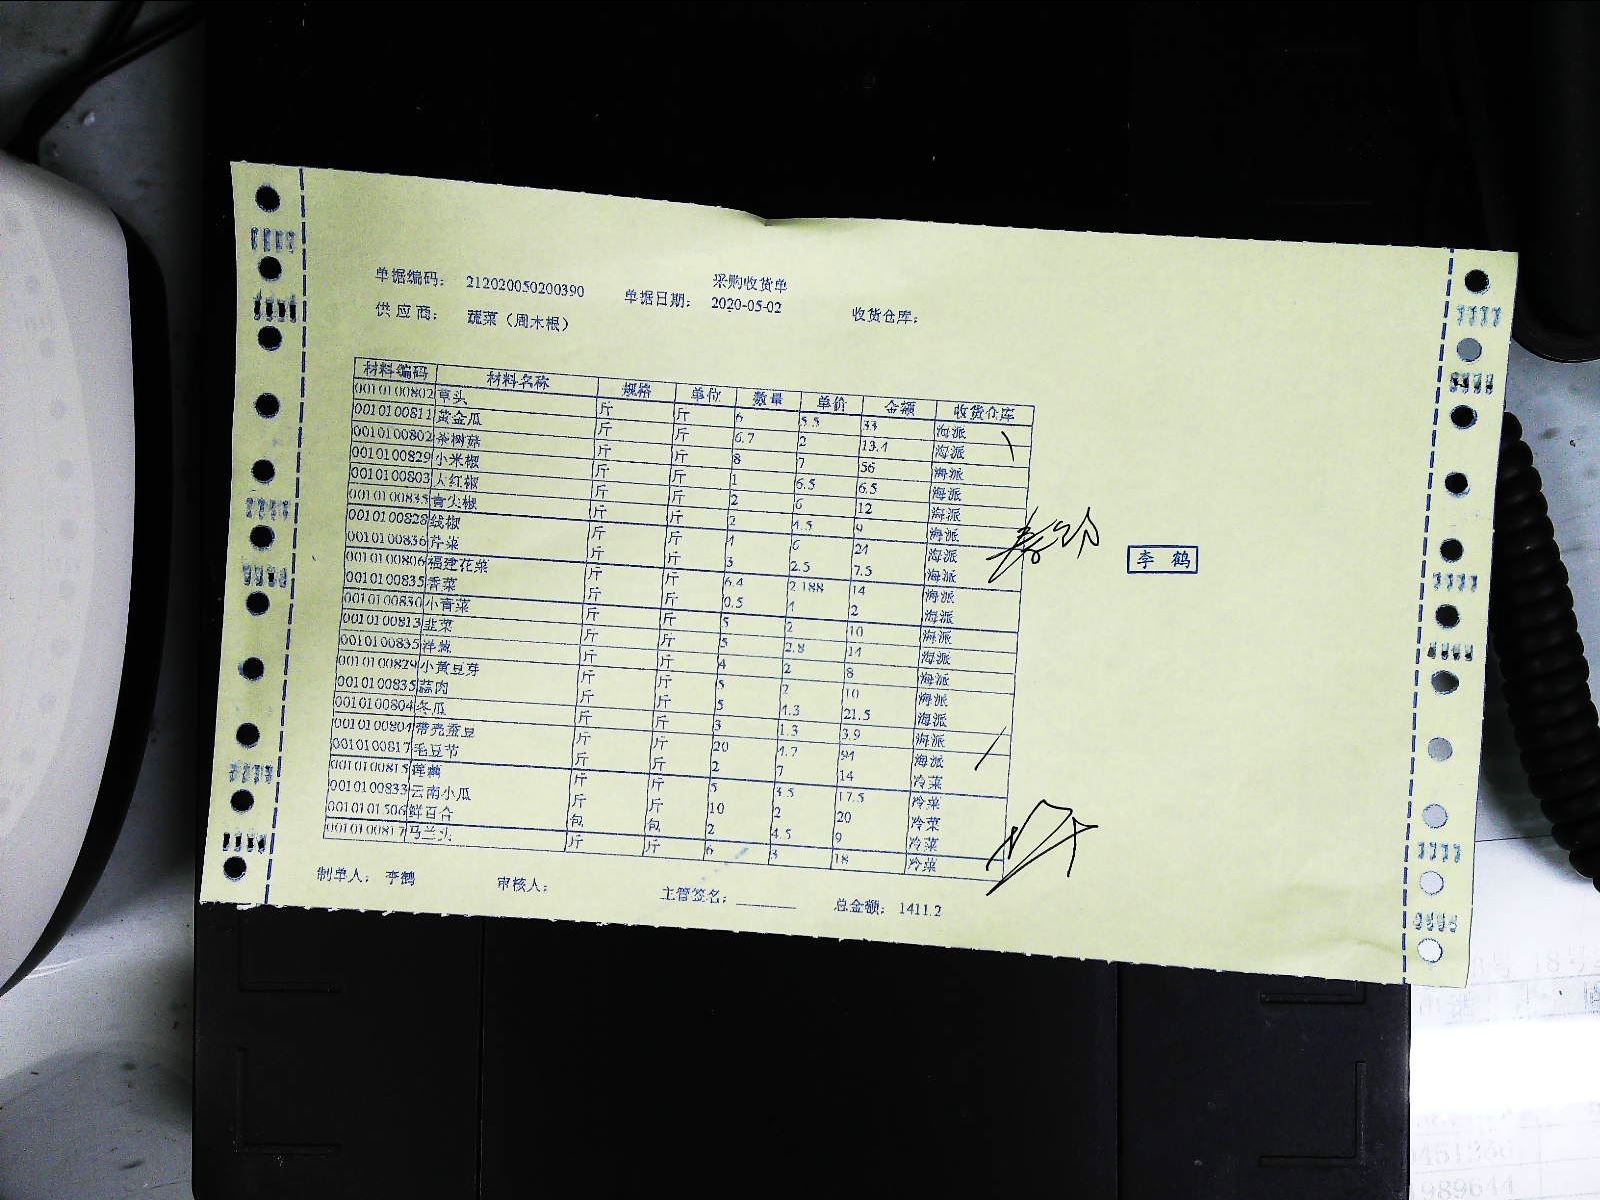 采购收货单
单据编码： 212020050200390 单据日期： 2020-05-02 收货仓库：
供应商： 蔬菜（周木根）
材料编码 材料名称 规格 单位 数量 单价 金额 收货仓库
0010100802 草头 斤 斤 6 5.5 33 海派
0010100811 黄金瓜 斤 斤 6.7 2 13.4 海派
0010100802 茶树菇 斤 斤 8 7 56 海派
0010100829 小米椒 斤 斤 1 6.5 6.5 海派
0010100803 大红椒 斤 斤 2 6 12 海派
0010100835 青尖椒 斤 斤 2 4.5 9 海派
0010100828 线椒 斤 斤 4 6 24 海派
0010100836 芹菜 斤 斤 3 2.5 7.5 海派
0010100806 福建花菜 斤 斤 6.4 2.188 14 海派
0010100835 香菜 斤 斤 0.5 4 2 海派
0010100830 小青菜 斤 斤 5 2 10 海派
0010100813 韭菜 斤 斤 5 2.8 14 海派
0010100835 洋葱 斤 斤 4 2 8 海派
0010100829 小黄豆芽 斤 斤 5 2 10 海派
0010100835 蒜肉 斤 斤 5 4.3 21.5 海派
0010100804 冬瓜 斤 斤 3 1.3 3.9 海派
0010100804 带壳蚕豆 斤 斤 20 4.7 94 海派
0010100817 毛豆节 斤 斤 2 7 14 冷菜
0010100815 莲藕 斤 斤 5 3.5 17.5 冷菜
0010100833 云南小瓜 斤 斤 10 2 20 冷菜
0010101506 鲜百合 包 包 2 4.5 9 冷菜
0010100817 马兰头 斤 斤 6 3 18 冷菜
李鹤
制单人： 李鹤 审核人： 主管签名： 总金额： 1411.2